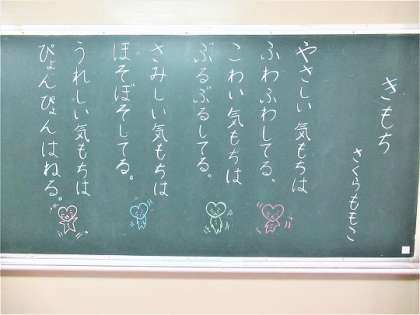 きもち
さくらももこ
やさしい気もちは
ふわふわしてる。
こわい気もちは
ぶるぶるしてる。
さみしい気もちは
ほそぼそしてる。
うれしい気もちは
ぴょんぴょんはねる。